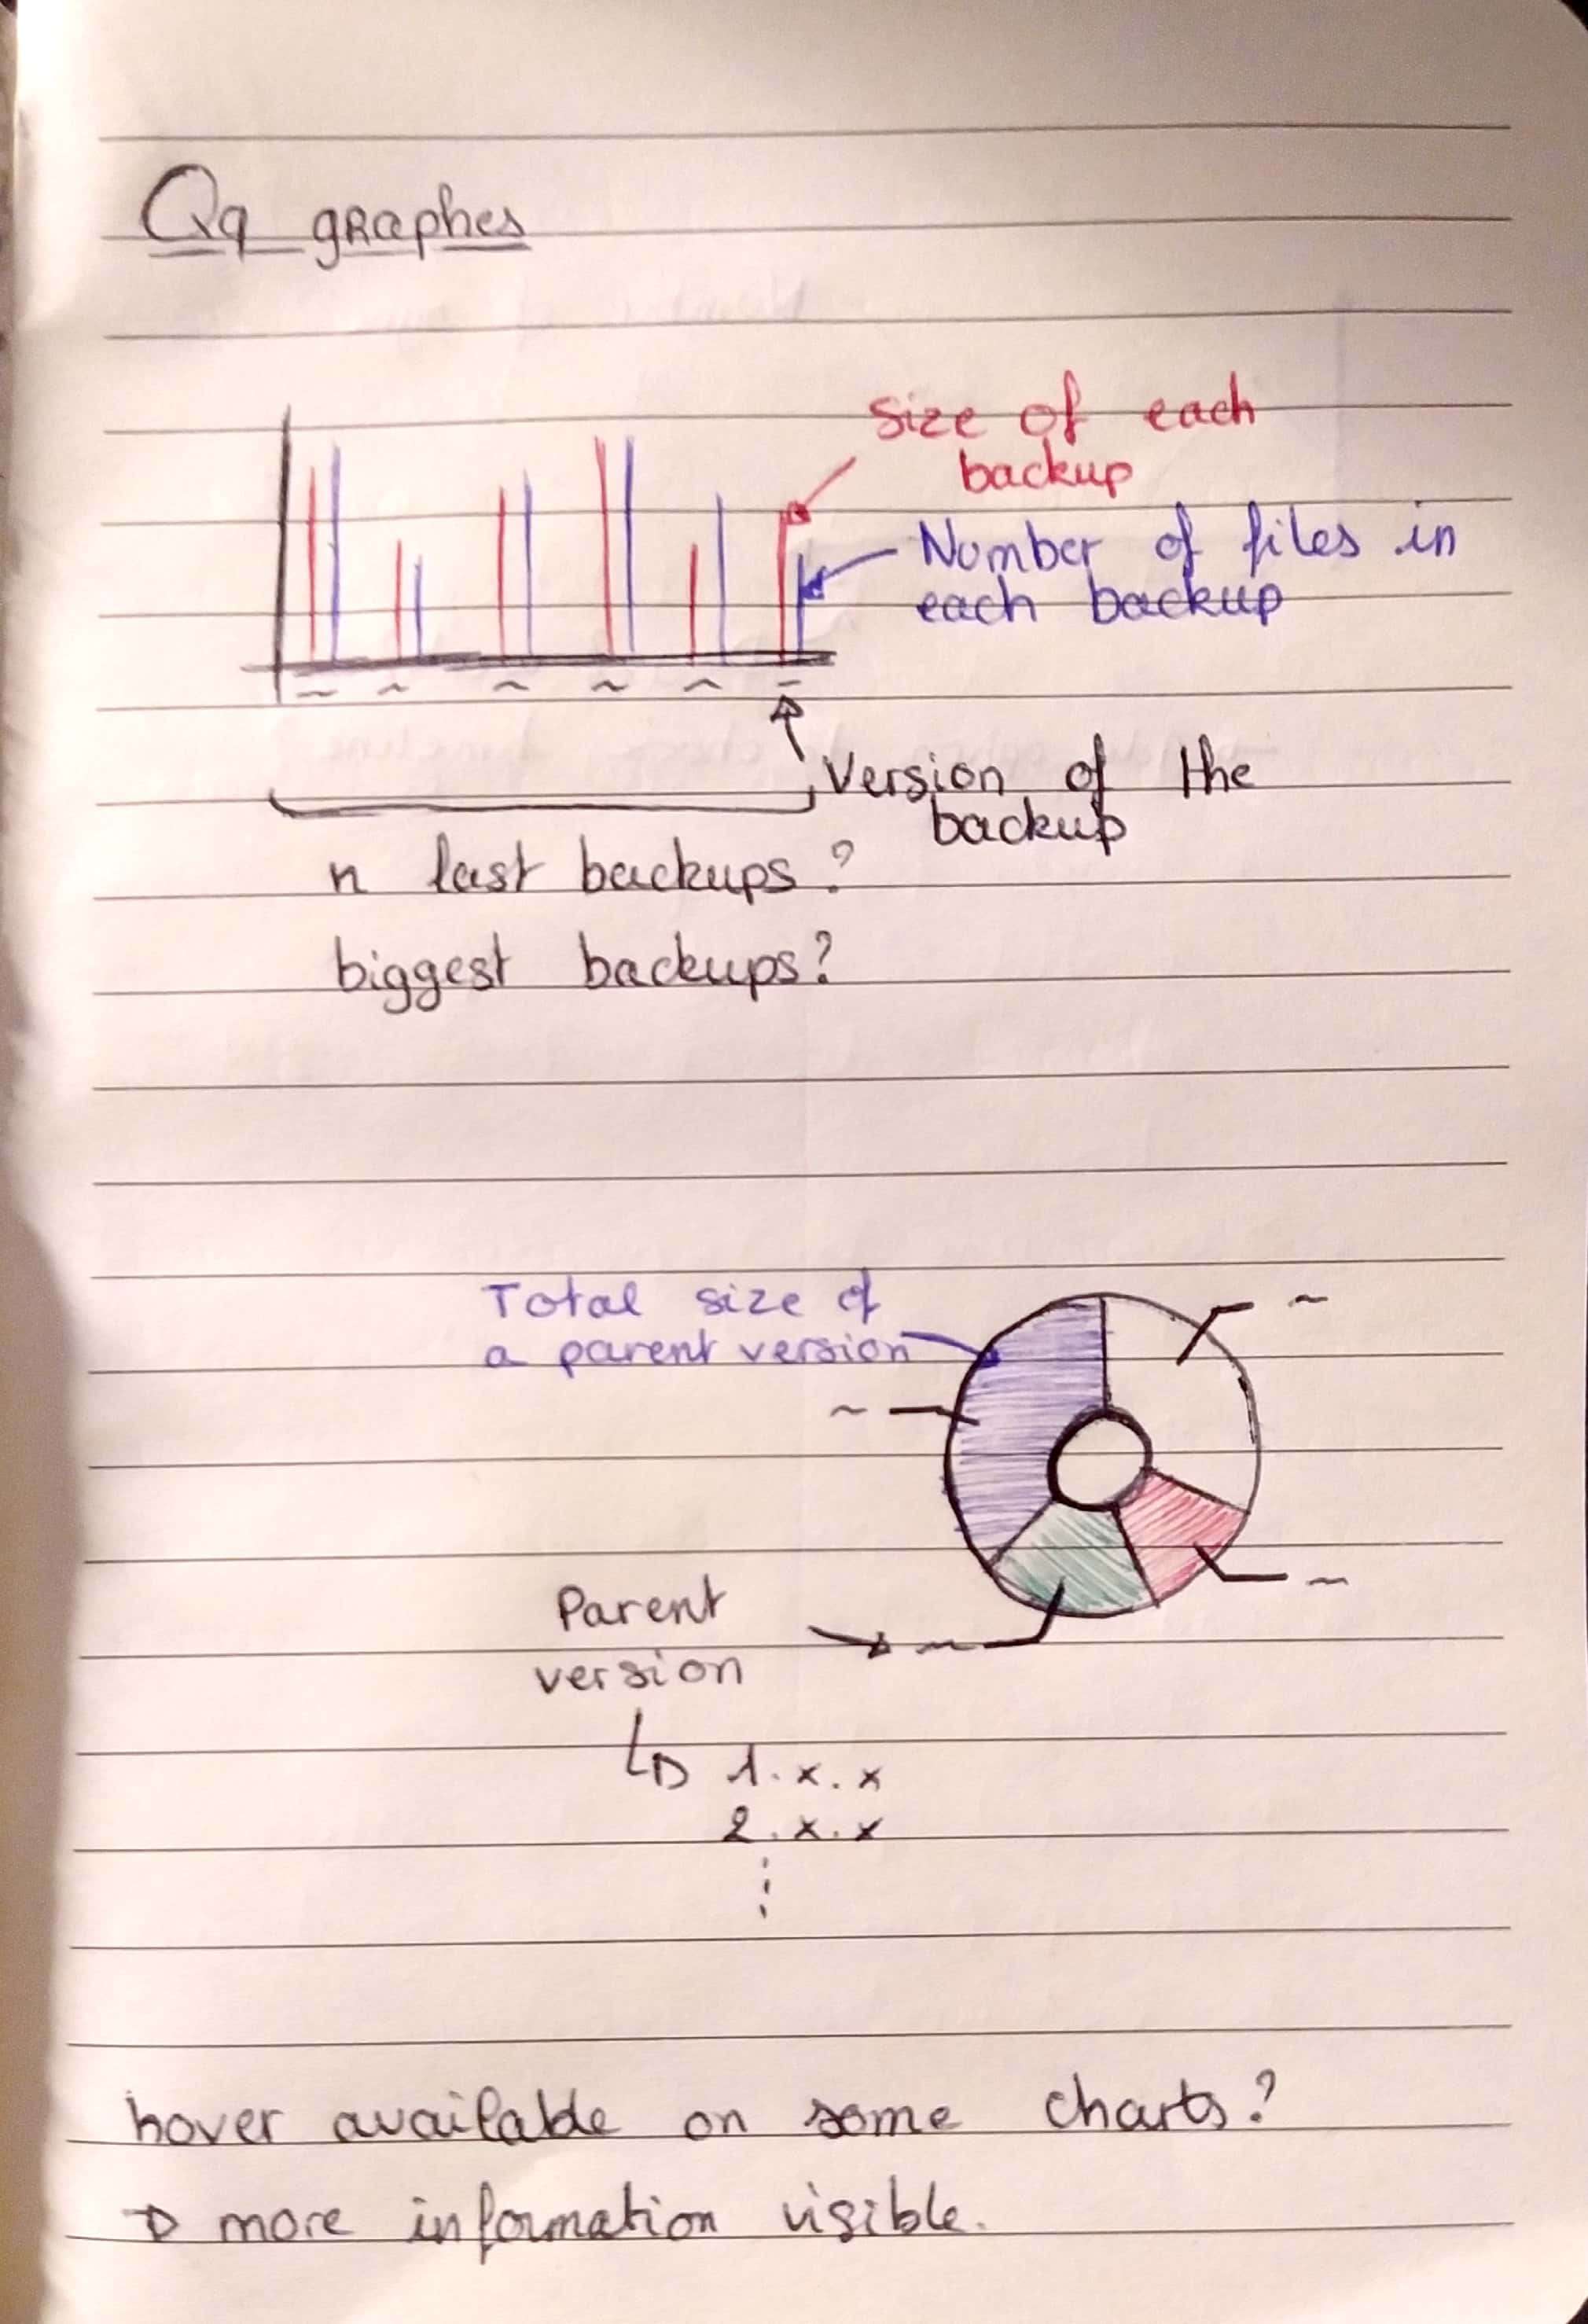 Qq graphes
Size of each
backup
Number of files in
each backup
Version of the
backup
n last backups ?
biggest backups?
Total size of
a parent version
Parent
version
1. x. x
2. x. x
hover available on some charts?
more information visible.